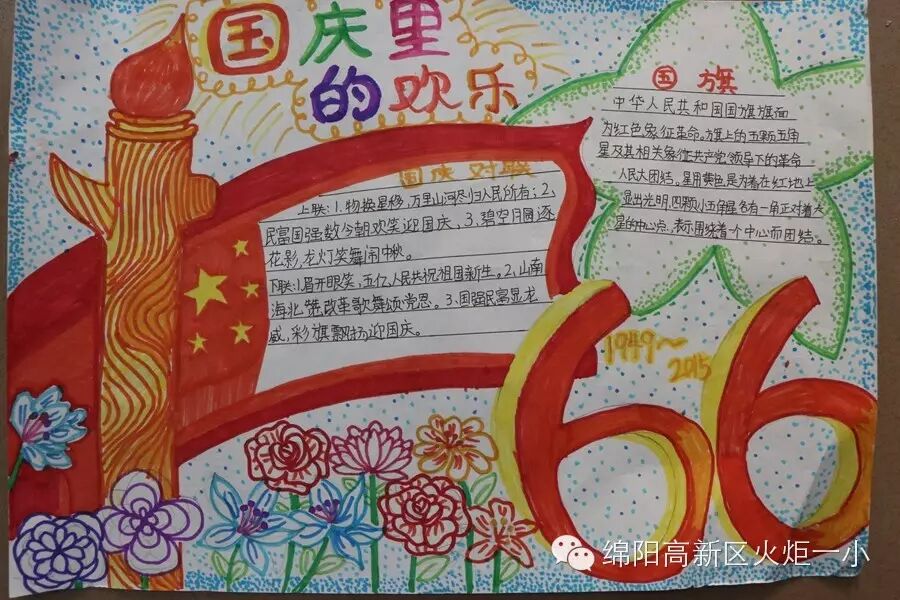 国庆里
的欢乐
国庆对联
上联:1.物换星移,万里山河尽归人民所有;2、
民富国强数今朝欢笑迎国庆、3、碧空月圆逐
花影,龙灯笑舞闹中秋。
下联:1.眉开眼笑,五亿人民共祝祖国新生。2、山南
海北赞改革歌舞颂党恩。3、国强民富显龙
威,彩旗飘扬迎国庆。
国旗
中华人民共和国国旗旗面
为红色象征革命。旗上的五颗五角
星及其相关象征共产党领导下的革命
人民大团结。星用黄色是为着在红地上
显出光明,四颗小五角星各有一角正对着大
星的中心点,表示围绕着一个中心而团结。
1949~
2015
66
绵阳高新区火炬一小